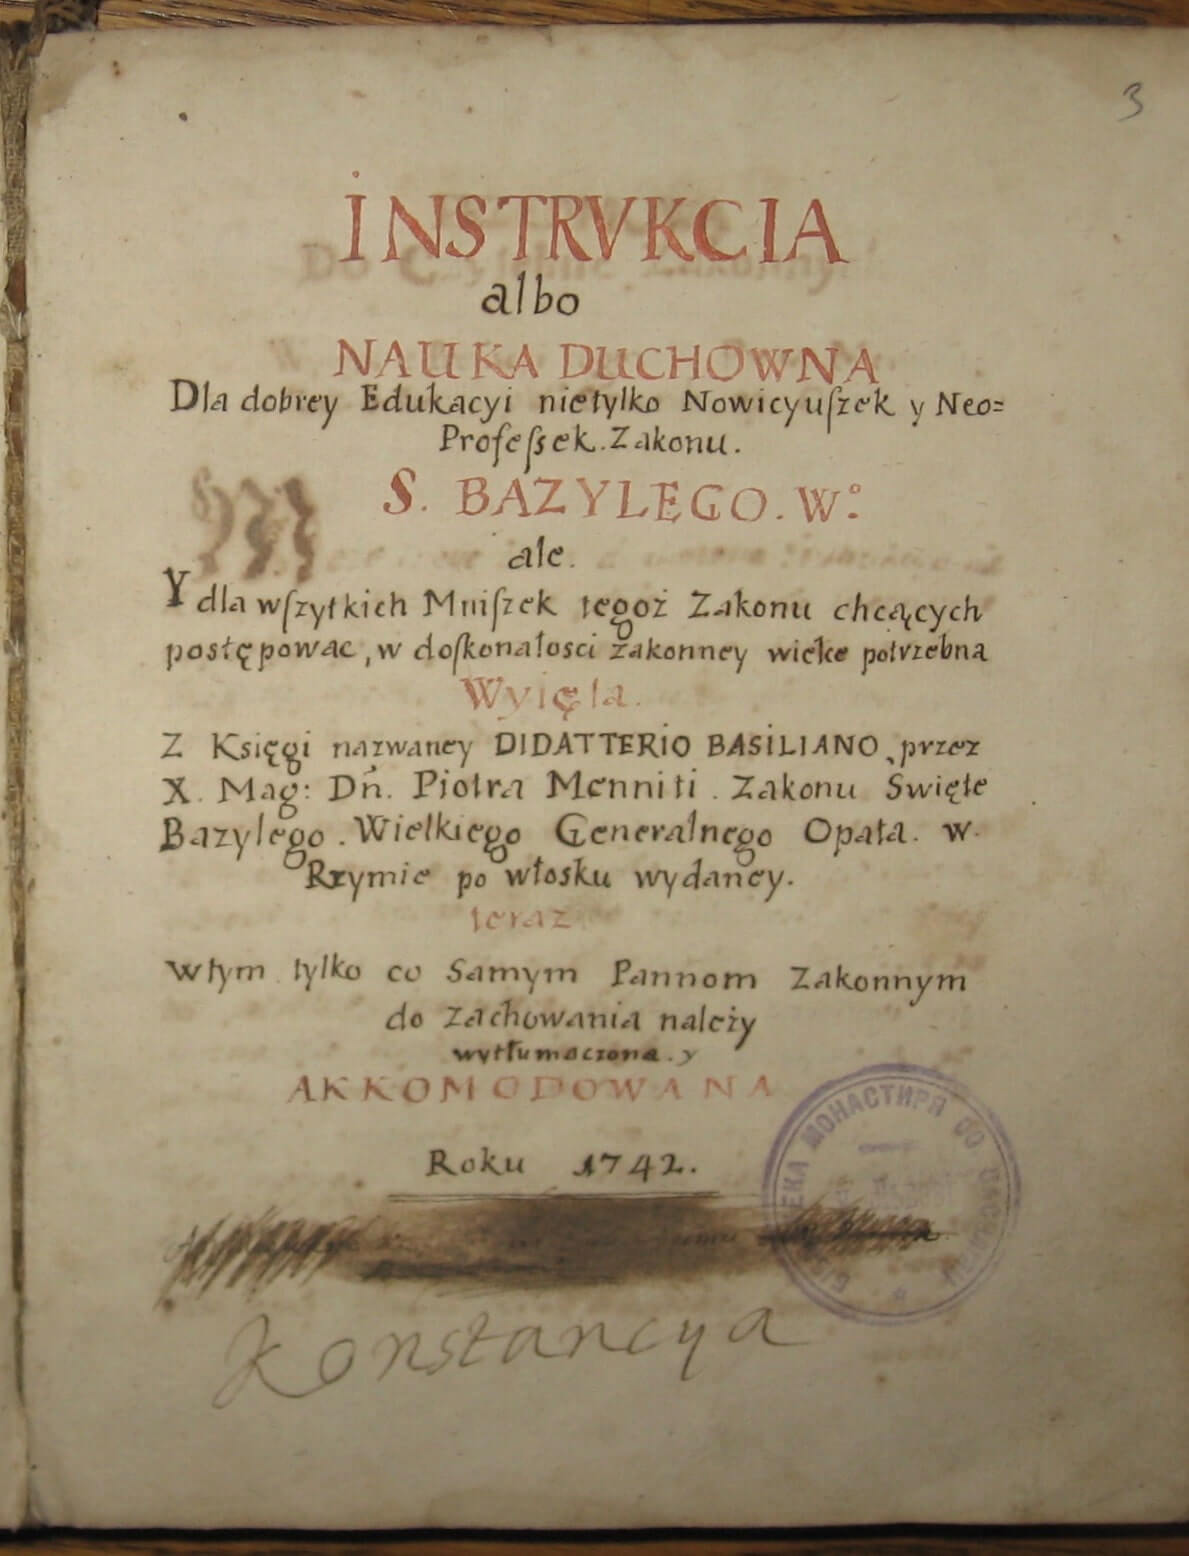 3
INSTRVKCIA
albo
NAUKA DUCHOWNA
Dla dobrey Edukacyi nietylko Nowicyuſzek y Neo=
Profeſsek. Zakonu.
S. BAZYLEGO. Wº:
ale.
Y dla wſzytkich Mniſzek tegoż Zakonu chcących
postępowac, w doſkonałosci zakonney wielce potrzebna
Wyięta.
Z Księgi nazwaney DIDATTERIO BASILIANO, przez
X. Mag: Dñ. Piotra Menniti. Zakonu Swięte
Bazylego. Wielkiego Generalnego Opata. w.
Rzymie po włosku wydaney.
teraz
Wtym tylko co Samym Pannom Zakonnym
do zachowania należy
wytłumaczona. y
AKKOMODOWANA
Roku 1742.
МОНАСТИРЯ
Konstancya